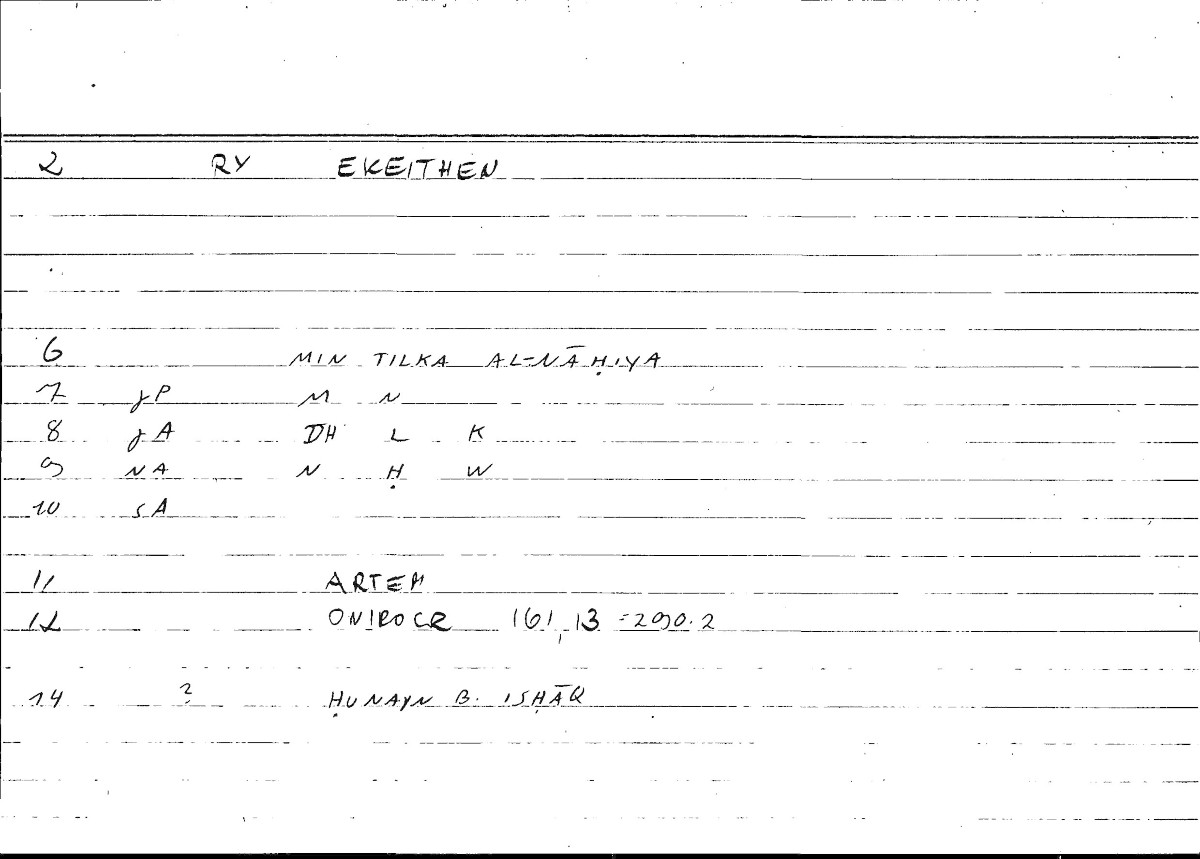 2 RY EKEITHEN
6 MIN TILKA AL-NĀḤIYA
7 γP M N
8 γA DH L K
9 NA N Ḥ W
10 SA
11 ARTEM
12 ONIROCR 161,13 = 290.2
14 ? ḤUNAYN B. ISḤĀQ